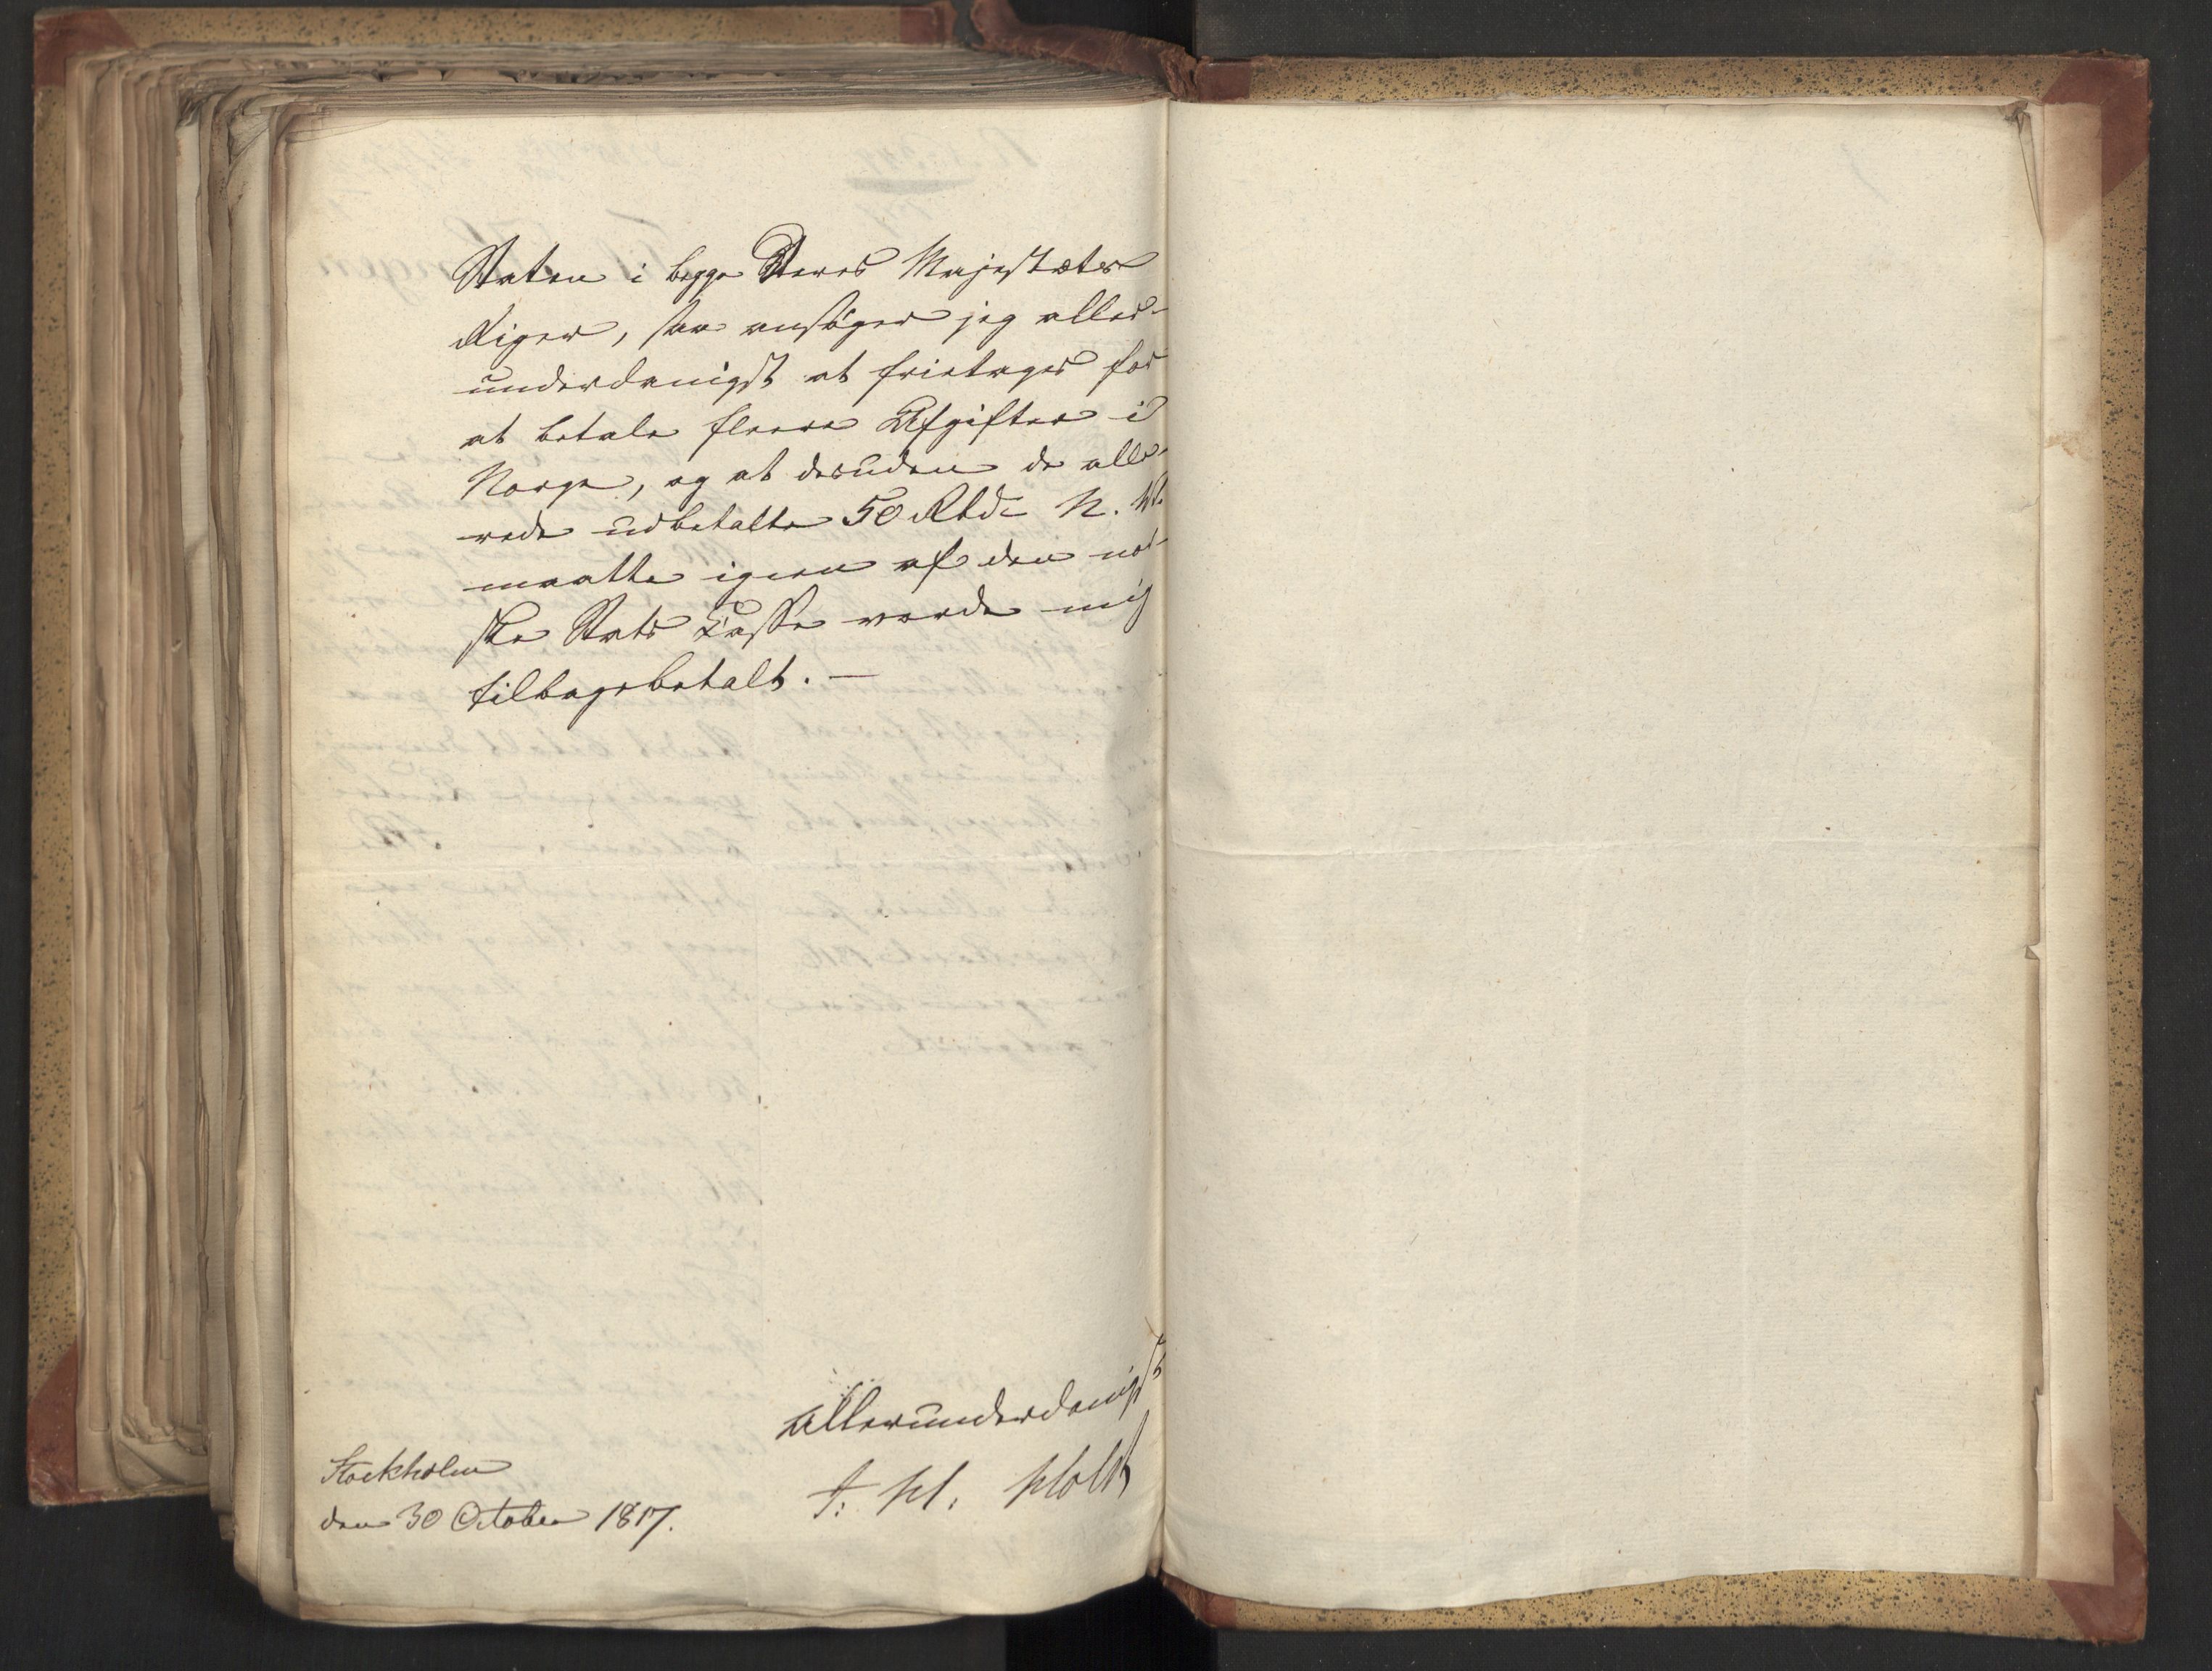 Staten i begge Deres Majestæts
Riger, saa ansøger jeg aller-
underdanigst at fritages for
at betale fleere Afgifter i
Norge, og at desuden de alle-
rede udbetalte 50 Rbd. N. V.
maatte igien af den nor-
ske Stats Casse vorde mig
tilbagebetalt. —
Allerunderdanigst
Stockholm
den 30 October 1817.
P: H: Holst